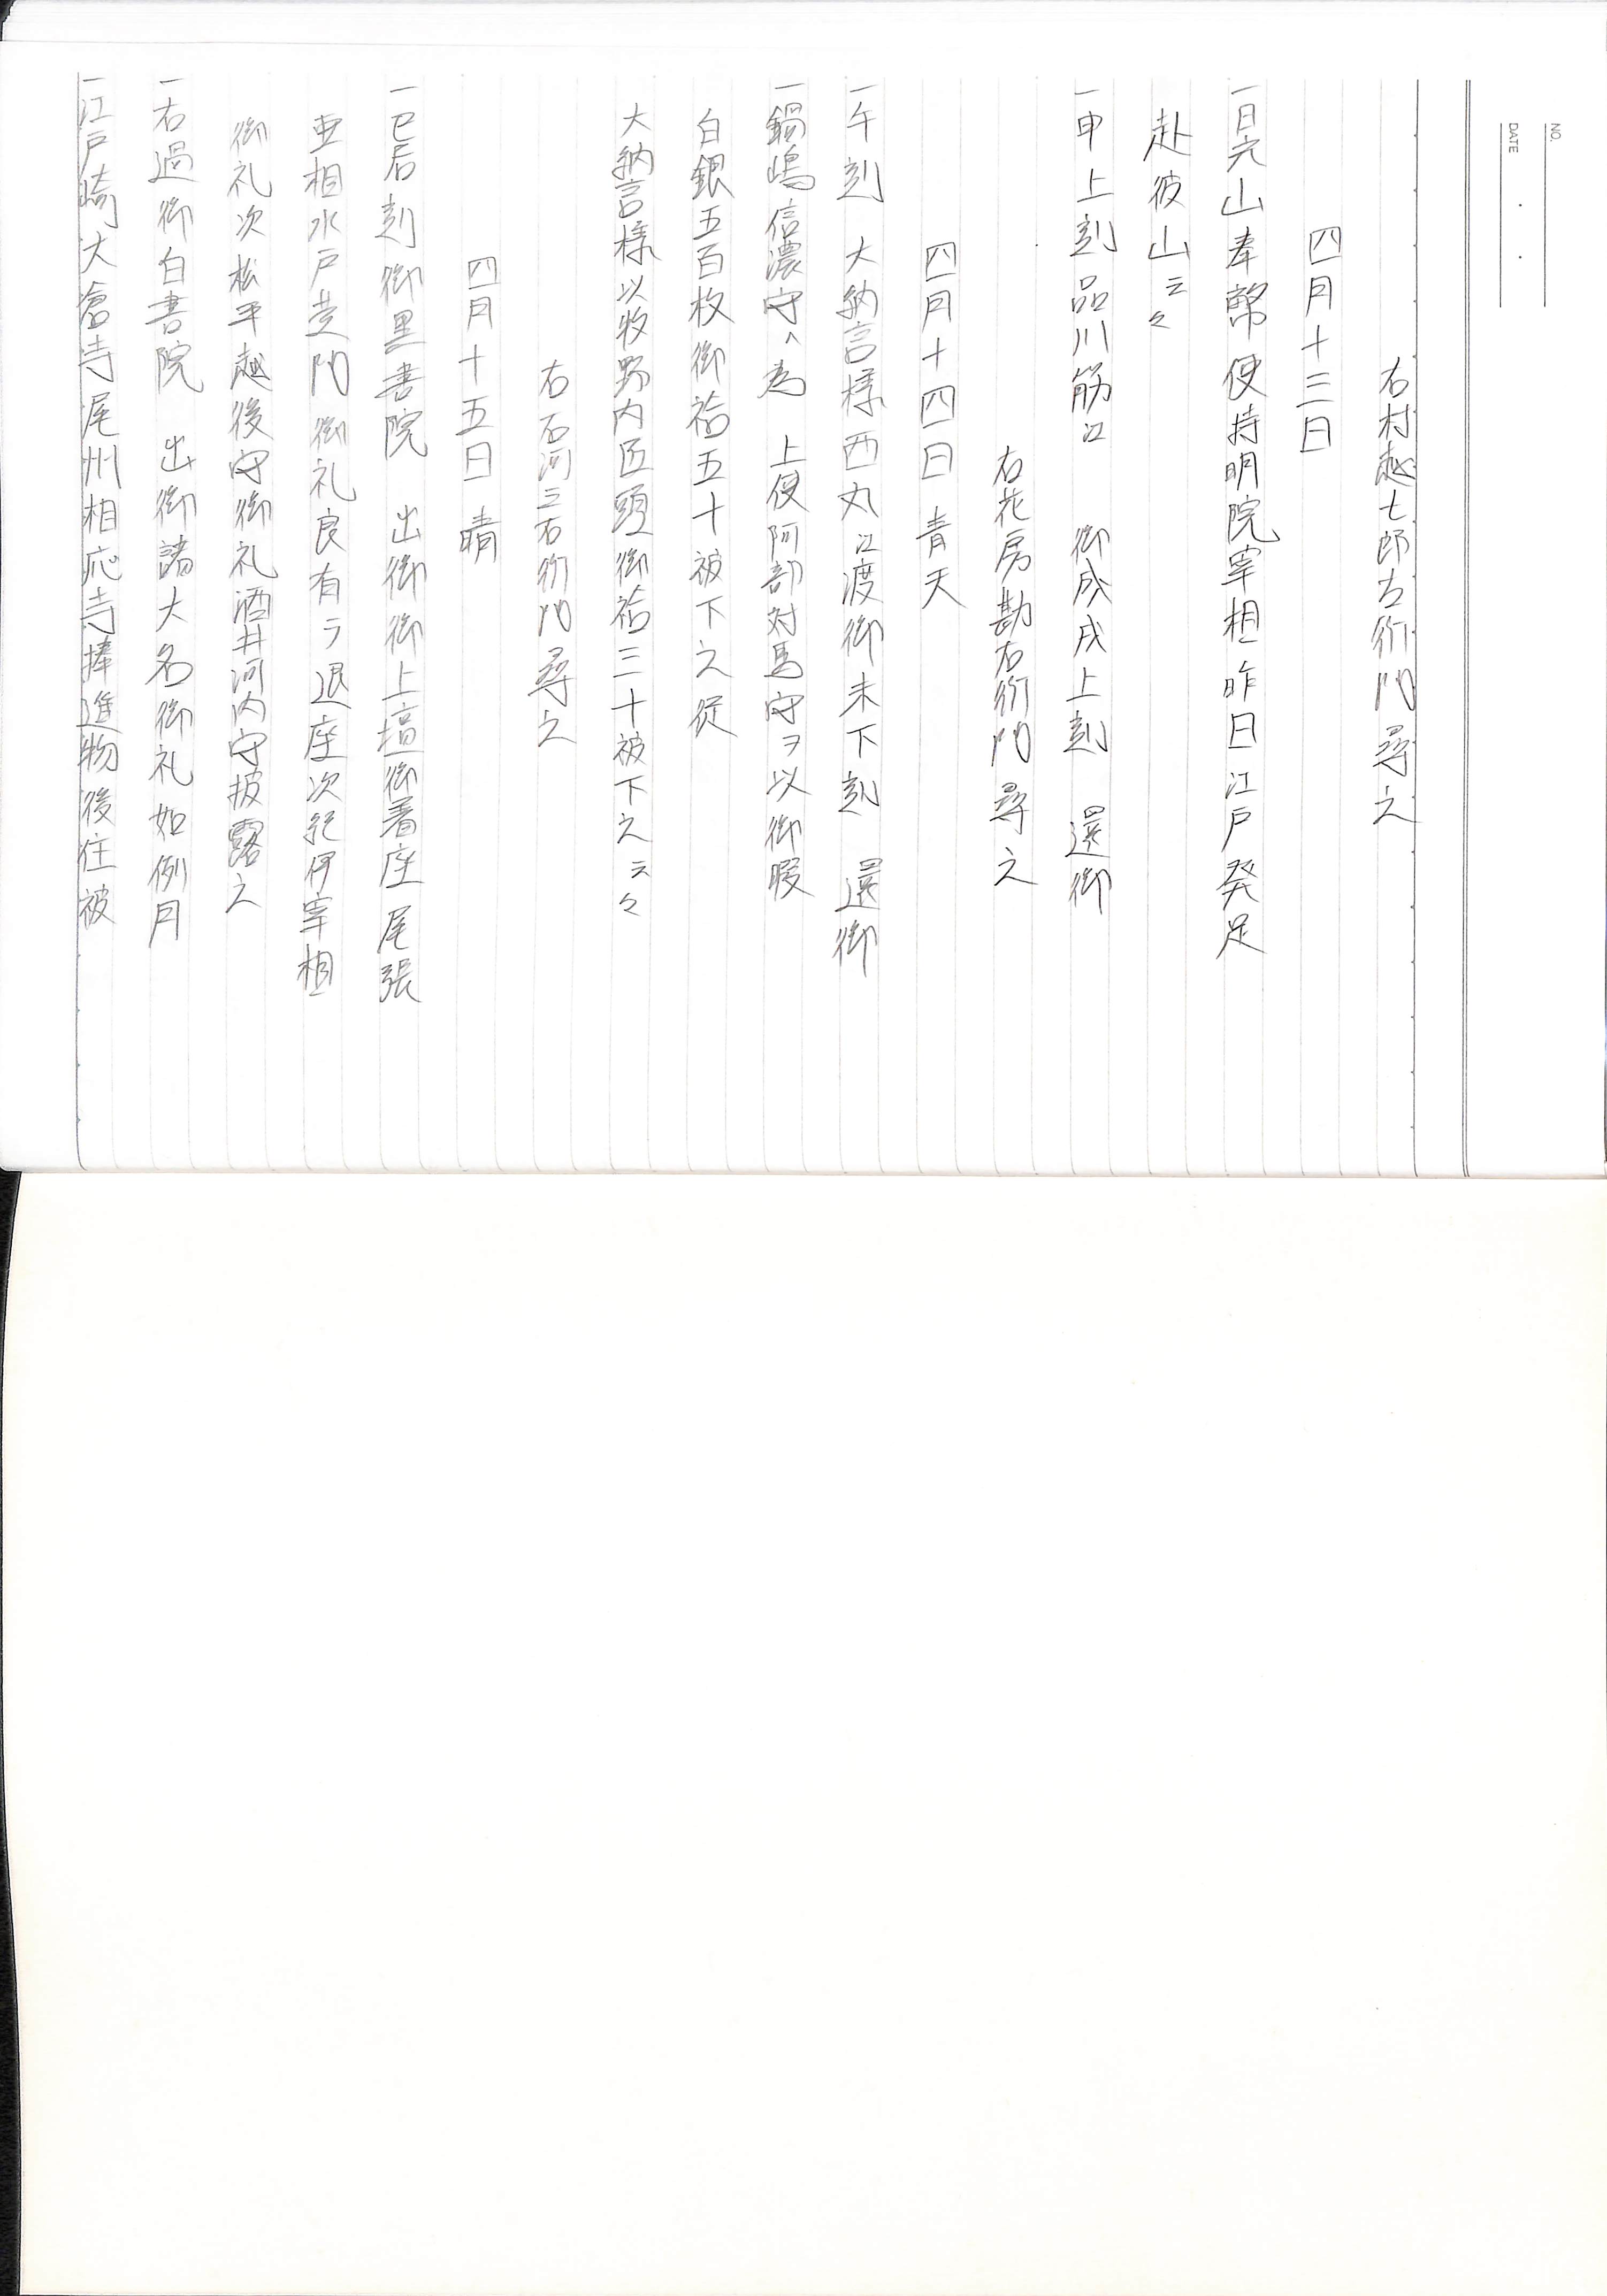 NO.
DATE
右村越七郎左衛門尋之
四月十三日
一日光山奉幣使持明院宰相昨日江戸発足
赴彼山云々
一申上刻品川筋江 御成戌上刻 還御
右花房勘右衛門尋之
四月十四日 青天
一午刻 大納言様西丸江渡御未下刻 還御
一鍋嶋信濃守へ為 上使阿部対馬守ヲ以御暇
白銀五百枚御袷五十被下之従
大納言様以牧野内匠頭御袷三十被下之云々
右石河三右衛門尋之
四月十五日 晴
一巳后刻御黒書院 出御御上壇御着座尾張
亜相水戸黄門御礼良有ラ退座次紀伊宰相
御礼次松平越後守御礼酒井河内守披露之
一右過御白書院 出御諸大名御礼如例月
一江戸崎大倉寺尾州相応寺捧進物後住被